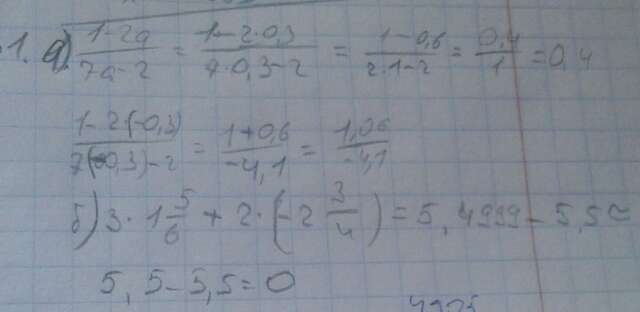 1. а) (1-2a)/(7a-2) = (1-2·0,3)/(7·0,3-2) = (1-0,6)/(2·1-2) = 0,4/1 = 0,4
(1-2(-0,3))/(7(-0,3)-2) = (1+0,6)/(-4,1) = 1,06/(-4,1)
б) 3·1 5/6 + 2·(-2 3/4) = 5,4999 - 5,5 ≈
5,5-5,5=0